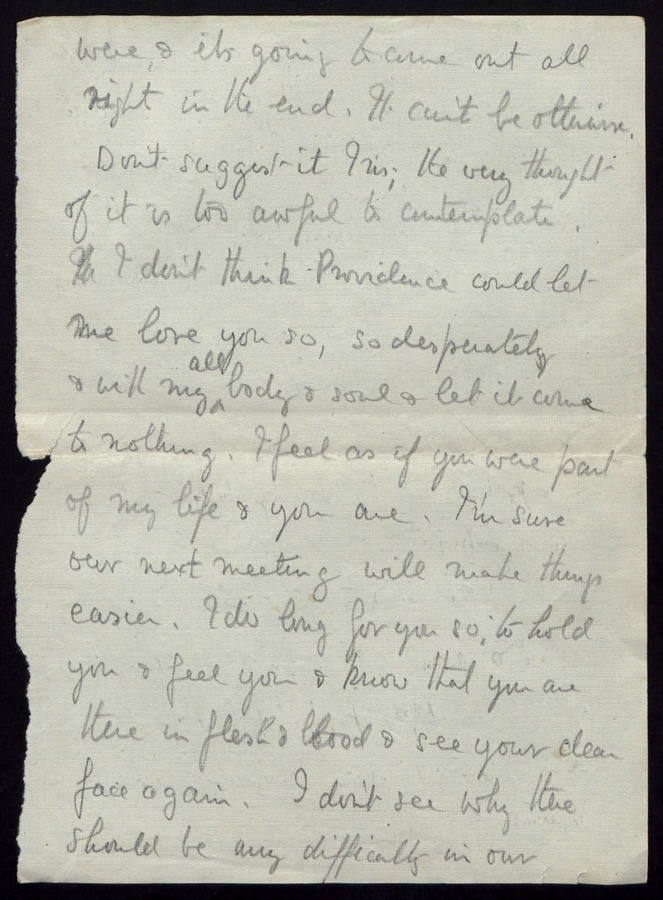 were, & its going to come out all
right in the end. It can't be otherwise.
Don't suggest it Iris; the very thought
of it is too awful to contemplate.
I don't think Providence could let
me love you so, so desperately
& with my all body & soul & let it come
to nothing. I feel as if you were part
of my life & you are. I'm sure
our next meeting will make things
easier. I do long for you so, to hold
you & feel you & know that you are
there in flesh & blood & see your dear
face again. I don't see why there
should be any difficulty in our